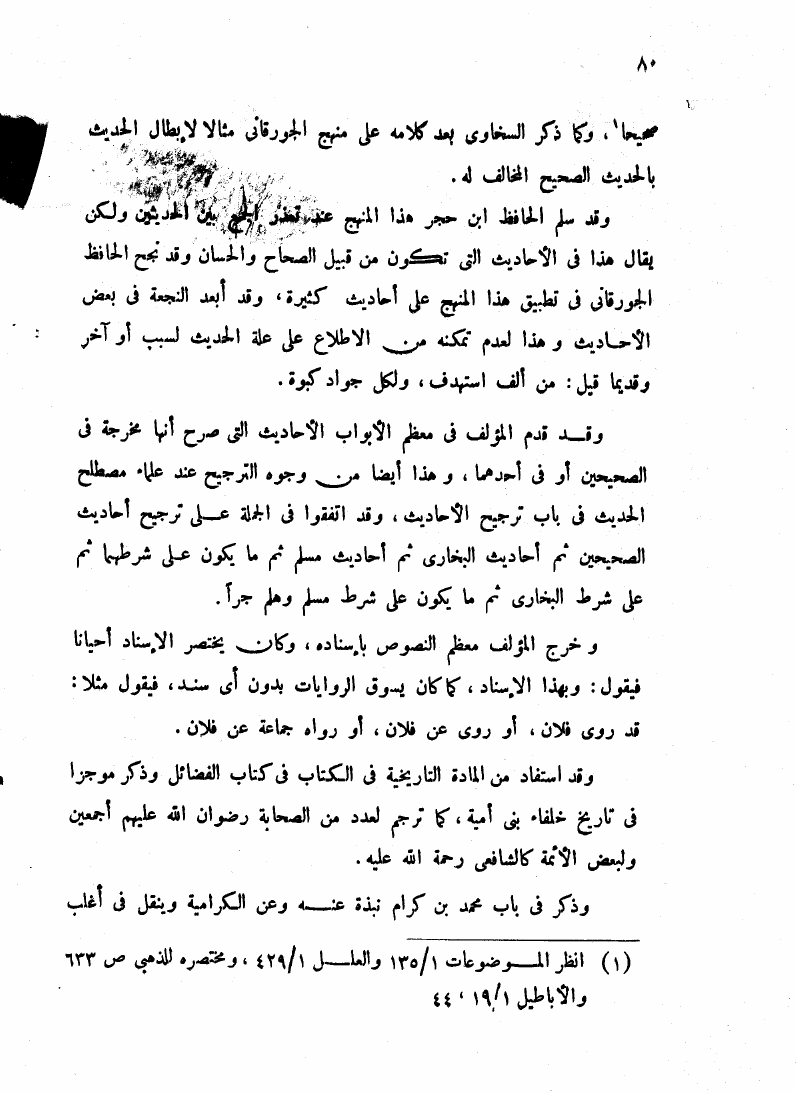 ٨٠
صحيحا١، وكما ذكر السخاوى بعد كلامه على منهج الجورقانى مثالا لإبطال الحديث
بالحديث الصحيح المخالف له.
وقد سلم الحافظ ابن حجر هذا المنهج عند تعذر الجمع بين الحديثين ولكن
يقال هذا فى الأحاديث التى تكون من قبيل الصحاح والحسان وقد نجح الحافظ
الجورقانى فى تطبيق هذا المنهج على أحاديث كثيرة، وقد أبعد النجعة فى بعض
الأحاديث و هذا لعدم تمكنه من الاطلاع على علة الحديث لسبب أو آخر
وقديما قيل: من ألف استهدف، ولكل جواد كبوة.
وقد قدم المؤلف فى معظم الأبواب الأحاديث التى صرح أنها مخرجة فى
الصحيحين أو فى أحدهما، و هذا أيضا من وجوه الترجيح عند علماء مصطلح
الحديث فى باب ترجيح الأحاديث، وقد اتفقوا فى الجملة على ترجيح أحاديث
الصحيحين ثم أحاديث البخارى ثم أحاديث مسلم ثم ما يكون على شرطهما ثم
على شرط البخارى ثم ما يكون على شرط مسلم وهلم جرأ.
و خرج المؤلف معظم النصوص بإسناده، وكان يختصر الإسناد أحيانا
فيقول: وبهذا الإسناد، كما كان يسوق الروايات بدون أى سند، فيقول مثلا:
قد روى فلان، أو روى عن فلان، أو رواه جماعة عن فلان.
وقد استفاد من المادة التاريخية فى الكتاب فى كتاب الفضائل وذكر موجزا
فى تاريخ خلفاء بنى أمية، كما ترجم لعدد من الصحابة رضوان الله عليهم أجمعين
ولبعض الأئمة كالشافعى رحمة الله عليه.
وذكر فى باب محمد بن كرام نبذة عنه وعن الكرامية وينقل فى أغلب
(١) انظر الموضوعات ١/١٣٥ والعلل ١/٤٢٩، ومختصره للذهبي ص ٦٣٣
والأباطيل ١/١٩، ٤٤